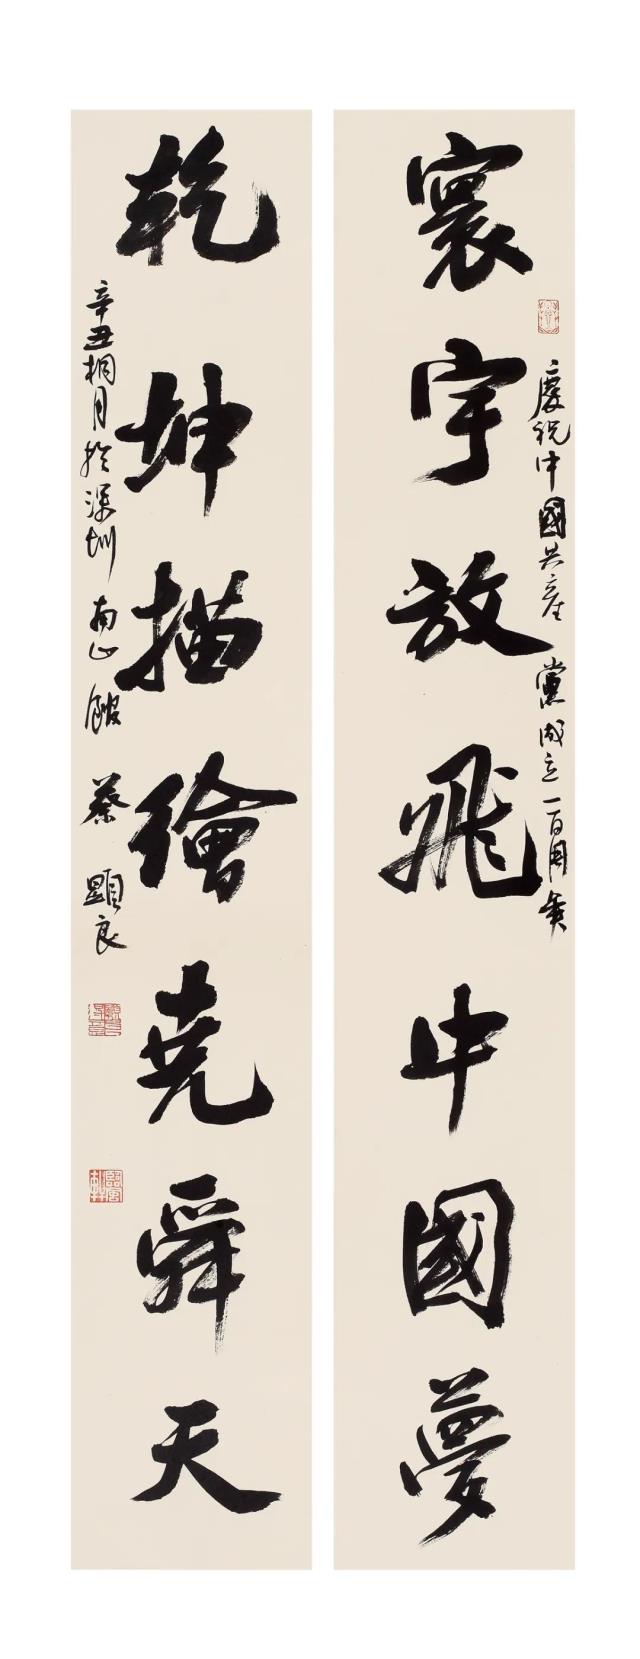 寰宇放飛中國夢
慶祝中國共產黨成立一百周年
乾坤描繪堯舜天
辛丑桐月於深圳南山館蔡顯良